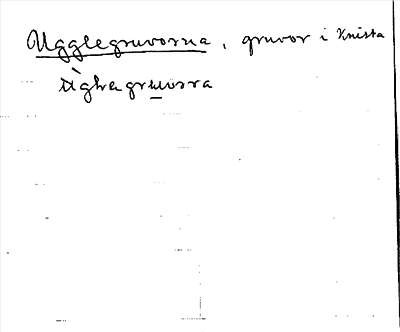 Ugglegruvorna, gruvor i Knista
ùglvagruvora